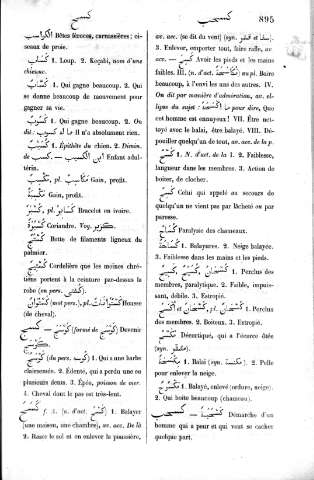 كسح
كسحب
895
الكواسب Bêtes féroces, carnassières; oi-
seaux de proie.
كساب 1. Loup. 2. Koçabi, nom d'une
chienne.
كسّاب 1. Qui gagne beaucoup. 2. Qui
se donne beaucoup de mouvement pour
gagner sa vie.
كسوب 1. Qui gagne beaucoup. 2. On
dit: Il n'a absolument rien.
1. Épithète du chien. 2. Dimin.
de كسب — ابن الكسيب Enfant adul-
térin.
مكسب, pl. مكاسب Gain, profit.
مكسبة Gain, profit.
pl. Bracelet en ivoire.
Coriandre. Voy.
Botte de filaments ligneux du
palmier.
كستيج Cordelière que les moines chré-
tiens portent à la ceinture par-dessus la
robe (en pers. كستى).
(mot pers.), pl. Housse
(de cheval).
كوسج — (formé de كوسج) Devenir
كوسج.
كوسج (du pers. كوسه) 1. Qui a une barbe
clairsemée. 2. Édenté, qui a perdu une ou
plusieurs dents. 3. Épée, poisson de mer.
4. Cheval dont le pas est très-lent.
كسح f. A. (n. d'act. كسح) 1. Balayer
(une maison, une chambre), av. acc. De là
2. Raser le sol et en enlever la poussière,
av. acc. (se dit du vent) (syn. قشر et سفا).
3. Enlever, emporter tout, faire rafle, av.
acc. — كسح Avoir les pieds et les mains
faibles. III. (n. d'act. مكاسحة) au pl. Boire
beaucoup, à l'envi les uns des autres. IV.
On dit par manière d'admiration, av. el-
lipse du sujet: pour dire, Que
cet homme est ennuyeux! VII. Être net-
toyé avec le balai, être balayé. VIII. Dé-
pouiller quelqu'un de tout, av. acc. de la p.
كسح 1. N. d'act. de la 1. 2. Faiblesse,
langueur dans les membres. 3. Action de
boiter, de clocher.
Celui qui appelé au secours de
quelqu'un ne vient pas par lâcheté ou par
paresse.
كساح Paralysie des chameaux.
كساحة 1. Balayures. 2. Neige balayée.
3. Faiblesse dans les mains et les pieds.
كسحان 1. Perclus des
membres, paralytique. 2. Faible, impuis-
sant, débile. 3. Estropié.
pl. كسحان 1. Perclus
des membres. 2. Boiteux. 3. Estropié.
Décortiqué, qui a l'écorce ôtée
(syn. مقشر).
مكسحة 1. Balai (syn. مكنسة). 2. Pelle
pour enlever la neige.
مكسوح 1. Balayé, enlevé (ordure, neige).
2. Qui boite beaucoup (chameau).
كسحب — كسحبة Démarche d'un
homme qui a peur et qui veut se cacher
quelque part.